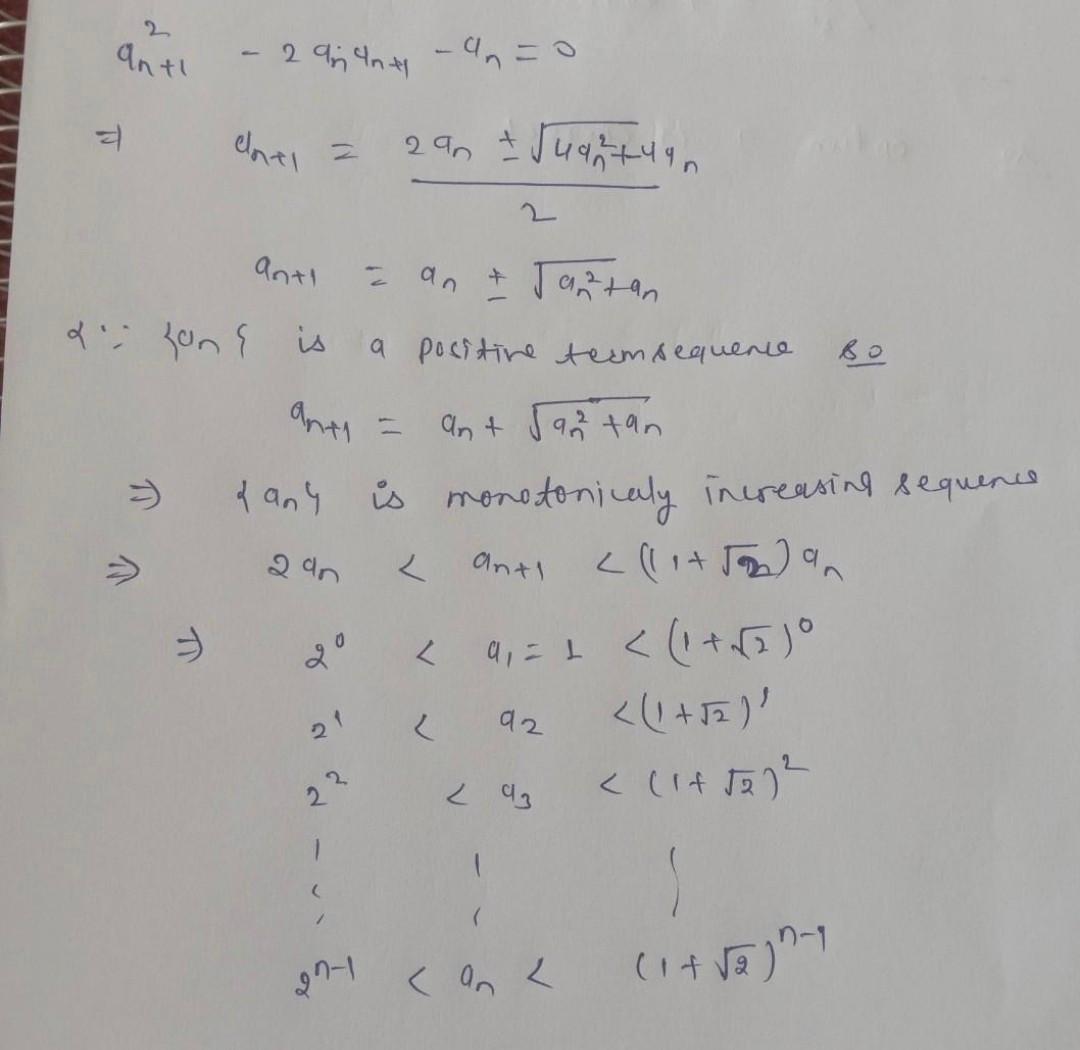 a²ₙ₊₁ - 2aₙaₙ₊₁ - aₙ = 0
⇒ aₙ₊₁ = (2aₙ ± √(4aₙ²+4aₙ))/2
aₙ₊₁ = aₙ ± √(aₙ²+aₙ)
& ∵ {aₙ} is a positive term sequence so
aₙ₊₁ = aₙ + √(aₙ²+aₙ)
⇒ {aₙ} is monotonicaly increasing sequence
⇒ 2aₙ < aₙ₊₁ < (1+√2)aₙ
⇒ 2⁰ < a₁ = 1 < (1+√2)⁰
2¹ < a₂ < (1+√2)¹
2² < a₃ < (1+√2)²
2ⁿ⁻¹ < aₙ < (1+√2)ⁿ⁻¹